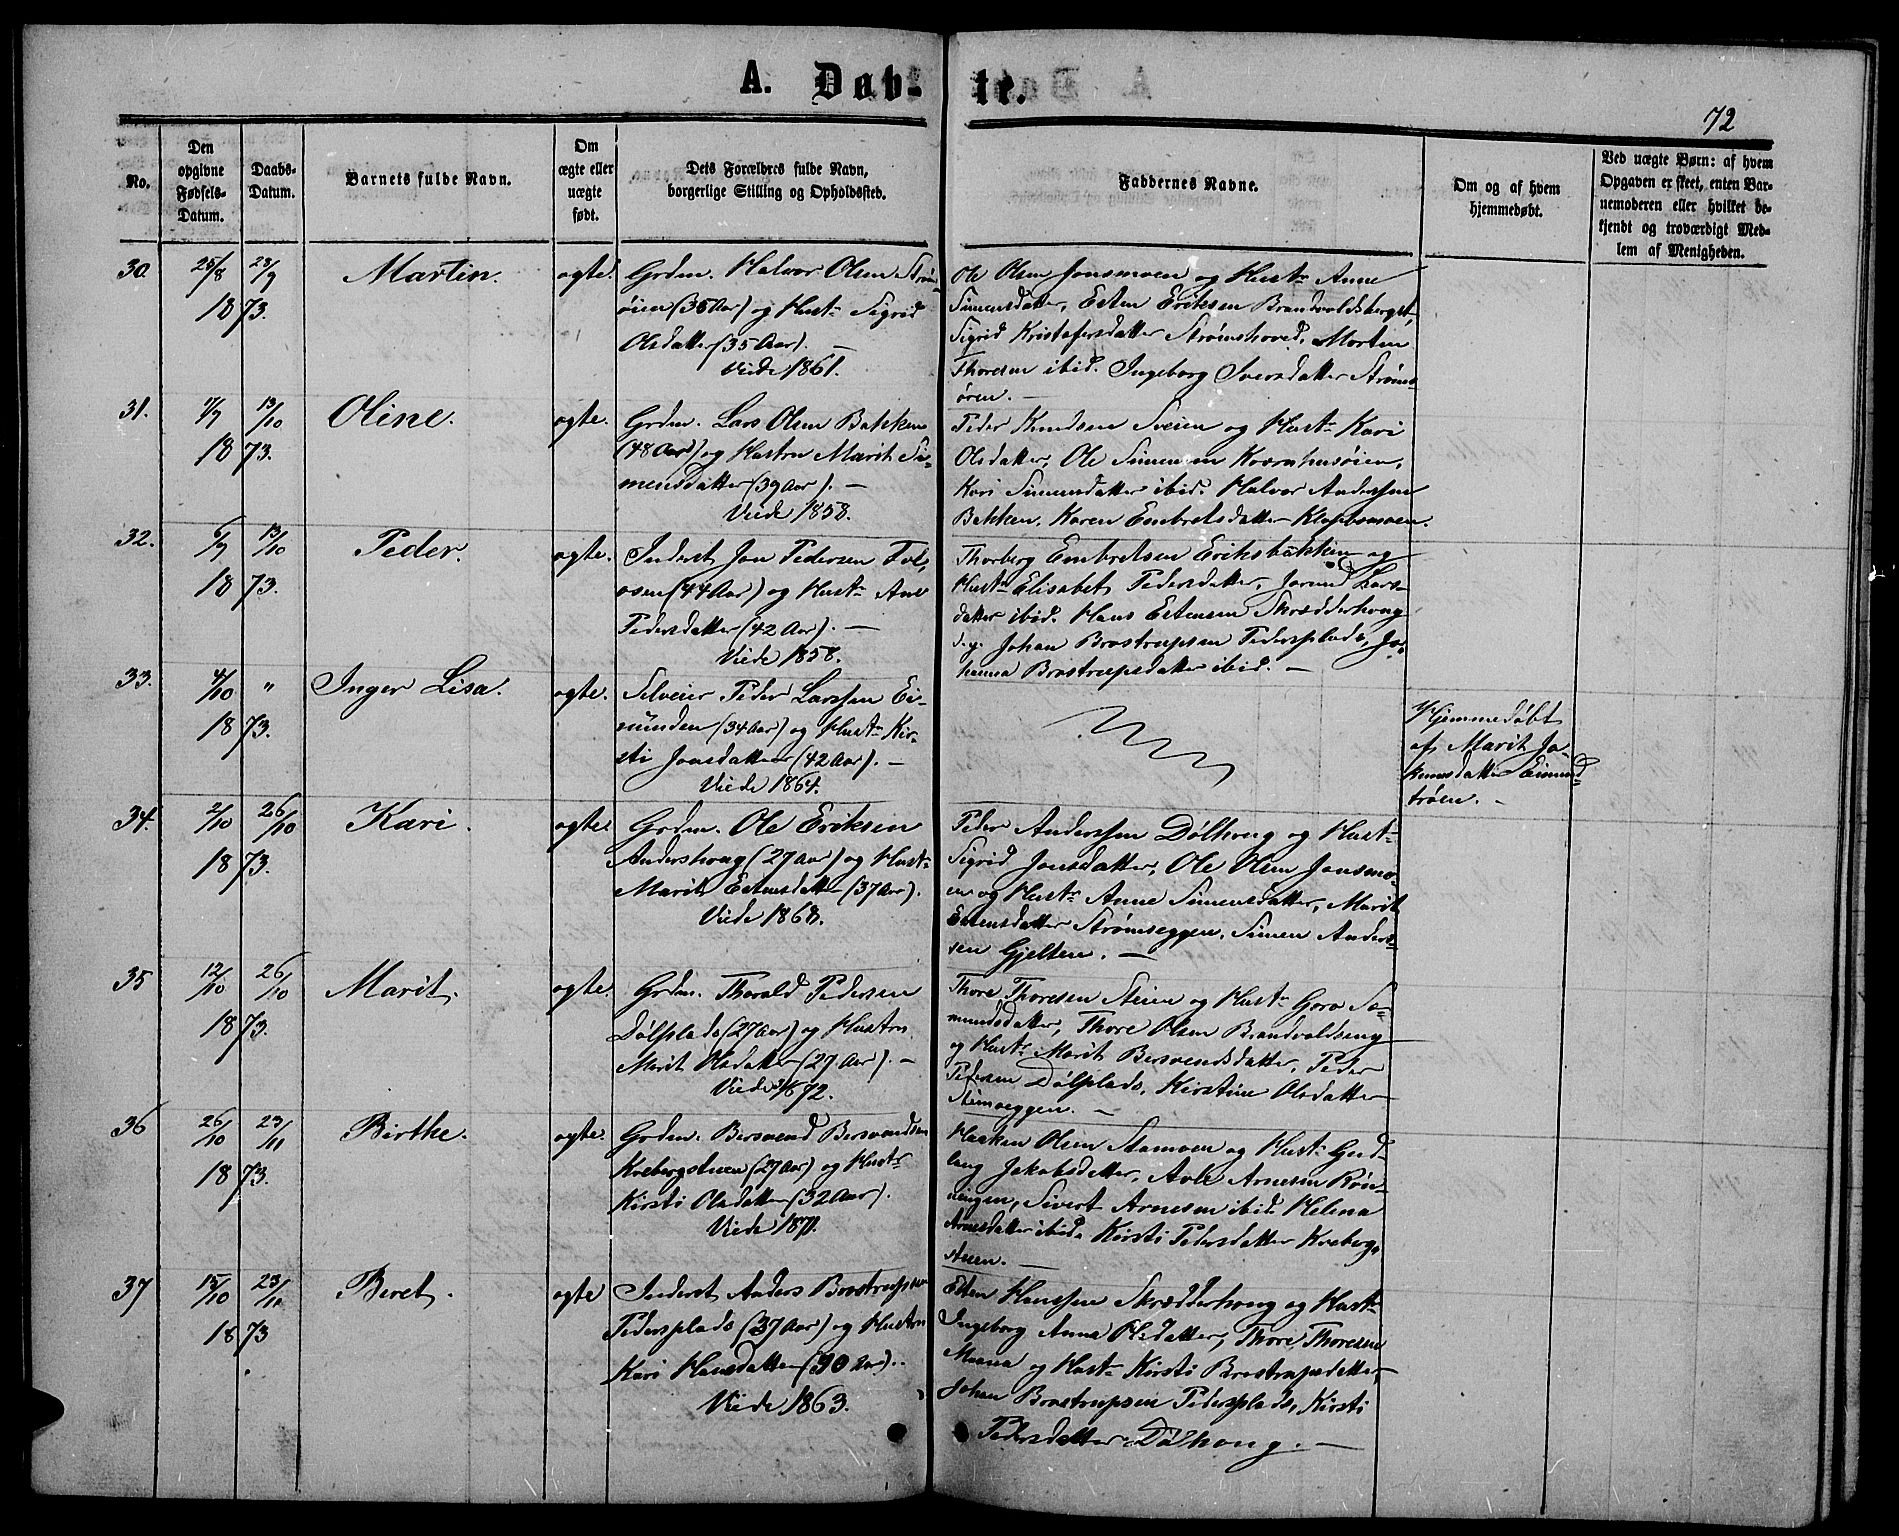 A. Døb-
te.
72
No.
Den opgivne Fødsels-Datum.
Daabs-Datum.
Barnets fulde Navn.
Om ægte eller uægte født.
Dets Forældres fulde Navn,
borgerlige Stilling og Opholdssted.
Faddernes Navne.
Om og af hvem
hjemmedøbt.
Ved uægte Børn: af hvem
Opgaven er skeet, enten Bar-
nemoderen eller hvilket be-
kjendt og troværdigt Med-
lem af Menigheden.
30. 25/8 23/9 1873. Martin. ægte.
Grdm. Halvor Olsen Strøm-
øien (35 Aar) og Hustr. Sigrid
Olsdatter (35 Aar). —
Viede 1861.
Ole Olsen Jonsmoen og Hustr. Anne
Simensdatter, Esten Eriksen Brandvoldsberget,
Sigrid Kristofersdatter Strømshoved, Morten
Thoresen ibid. Ingeborg Sversdatter Strøms-
øren. —
31. 13/10 1873. Oline. ægte.
Grdm. Lars Olsen Bakken
(48 Aar) og Hustru Marit Si-
mensdatter (39 Aar). —
Viede 1858.
Peder Knudsen Sveien og Hustr. Kari
Olsdatter, Ole Simensen Kværnhusøien,
Kari Simensdatter ibid. Halvor Anderssen
Bakken. Karen Embretsdatter Kloppmoen.
32. 6/9 13/10 1873. Peder. ægte.
Inderst Jon Pedersen
(44 Aar) og Hustr. Ane
Pedersdatter (42 Aar). —
Viede 1858.
Thorberg Embretsen Eriksbakken og
Hustr. Elisabet Pedersdatter, Jorund Lars-
datter ibid. Hans Estensen Skrædderhoug
d.y. Johan Brostrupsen Pedersplads, Jo-
hanna Brostrupsdatter ibid. —
33. 4/10 " 1873. Inger Lisa. ægte.
Selveier Peder Larssen Ei-
munden (34 Aar) og Hustr. Kir-
sti Jonsdatter (42 Aar). —
Viede 1864.
Hjemmedøbt
af Marit Jo-
hannesdatter Eimund-
trøen. —
34. 2/10 26/10 1873. Kari. ægte.
Grdm. Ole Eriksen
Andershoug (27 Aar) og Hustr.
Marit Estensdatter (37 Aar).
Viede 1868.
Peder Anderssen Dølhoug og Hustr.
Sigrid Jonsdatter, Ole Olsen Jonsmo-
en og Hustr. Anne Simensdatter, Marit
Estensdatter Strømseggen, Simen Anders-
sen Gjelten. —
35 12/10 26/10 1873. Marit. ægte.
Grdm. Thorald Pedersen
Dølplads (27 Aar) og Hustru
Marit Olsdatter (27 Aar). —
Viede 1872.
Thore Thoresen Steien og Hustr. Goro Sæ-
mundsdatter, Thore Olsen Brandvoldseng
og Hustr. Marit Bersvendsdatter, Peder
Pedersen Dølplads, Kirstine Olsdatter
36 26/10 23/11 1873. Birthe. ægte.
Grdm. Bersvend Bersvendsen
Krebergstuen (27 Aar) og Hustr.
Kirsti Olsdatter (32 Aar).
Viede 1871.
Haaken Olsen Stamoen og Hustr. Gud-
laug Jakobsdatter, Avle Arnesen Røn-
ningen, Sivert Arnesen ibid. Helena
Arnesdatter ibid. Kirsti Pedersdatter Kreberg-
stuen. —
37 15/10 23/11 1873 Beret. ægte
Inderst Anders Brostrupsen
Pedersplads (37 Aar) og Hustru
Kari Hansdatter (30 Aar).
Viede 1863.
Esten Hanssen Skrædderhoug og Hustr.
Ingeborg Anna Olsdatter, Thore Thoresen
Moana og Hustr. Kirsti Brostrupsdatter,
Johan Brostrupsen Pedersplads, Kirsti
Pedersdatter Dølhoug. —